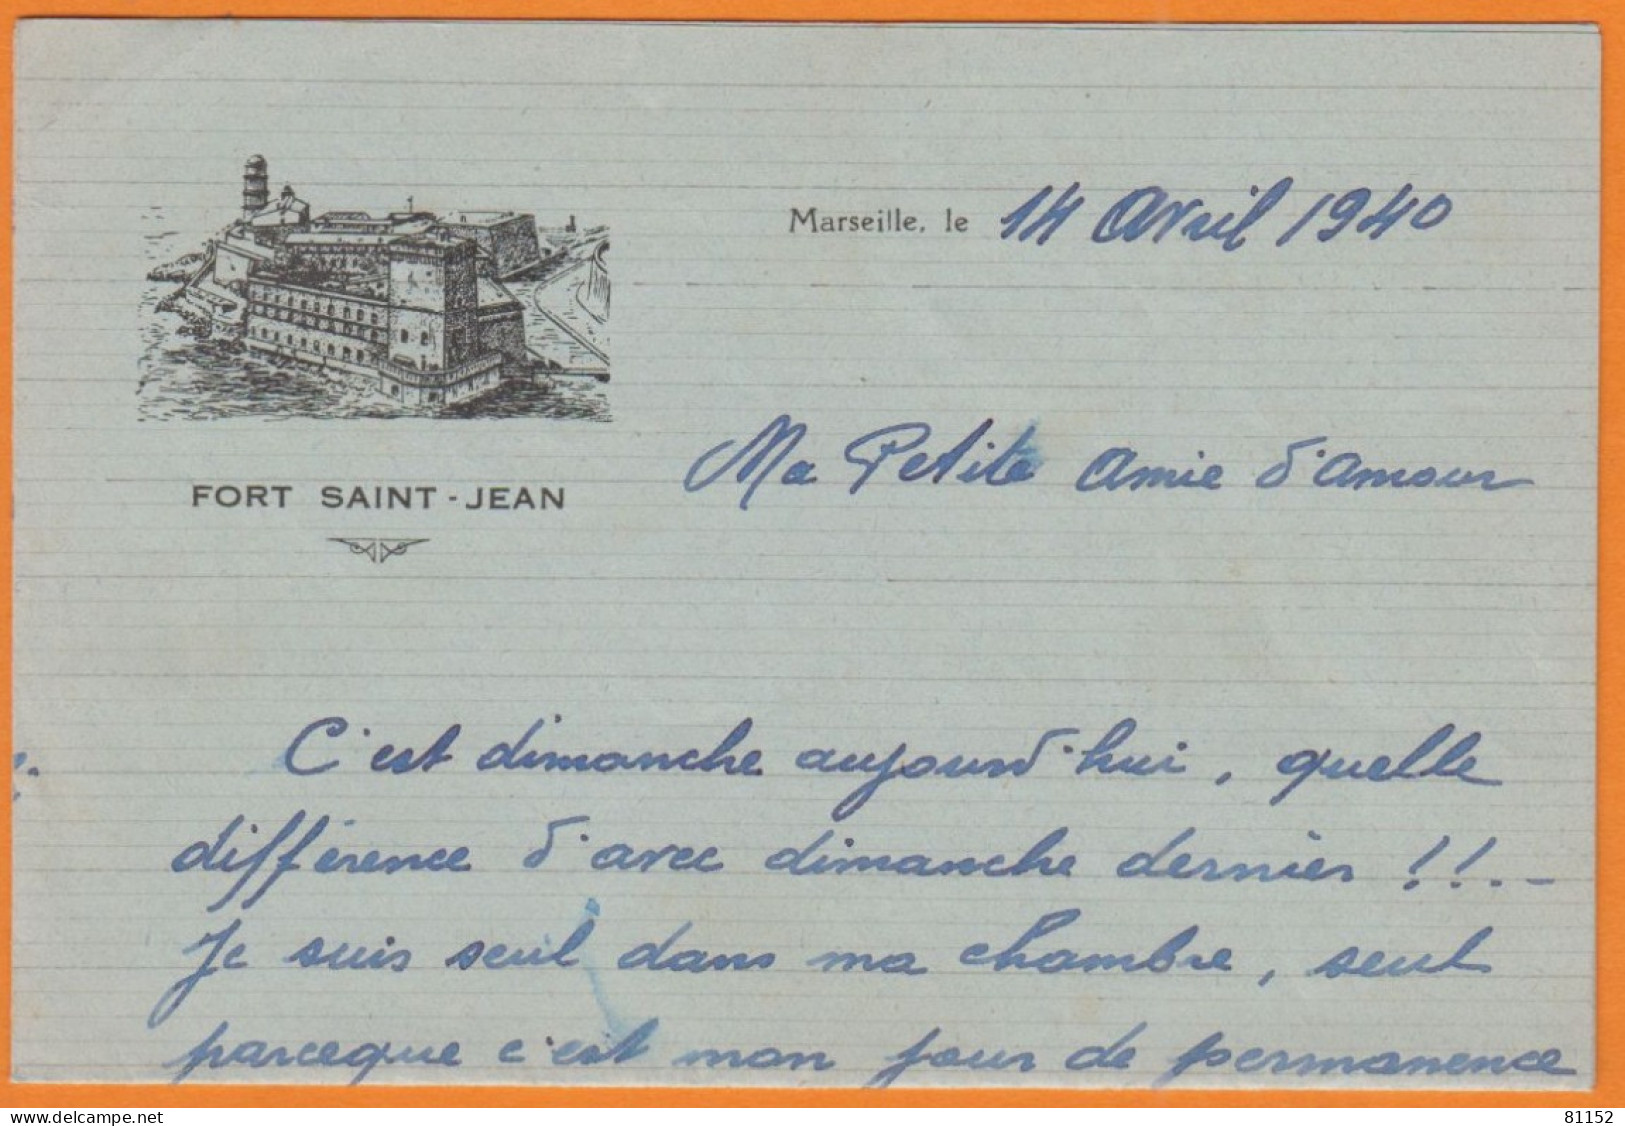 Marseille, le 14 Avril 1940
FORT SAINT-JEAN
Ma Petite Amie d'Amour
C'est dimanche aujourd'hui, quelle
différence d'avec dimanche dernier !!.-
Je suis seul dans ma chambre, seul
parceque c'est mon jour de permanence
delcampe.net
81152